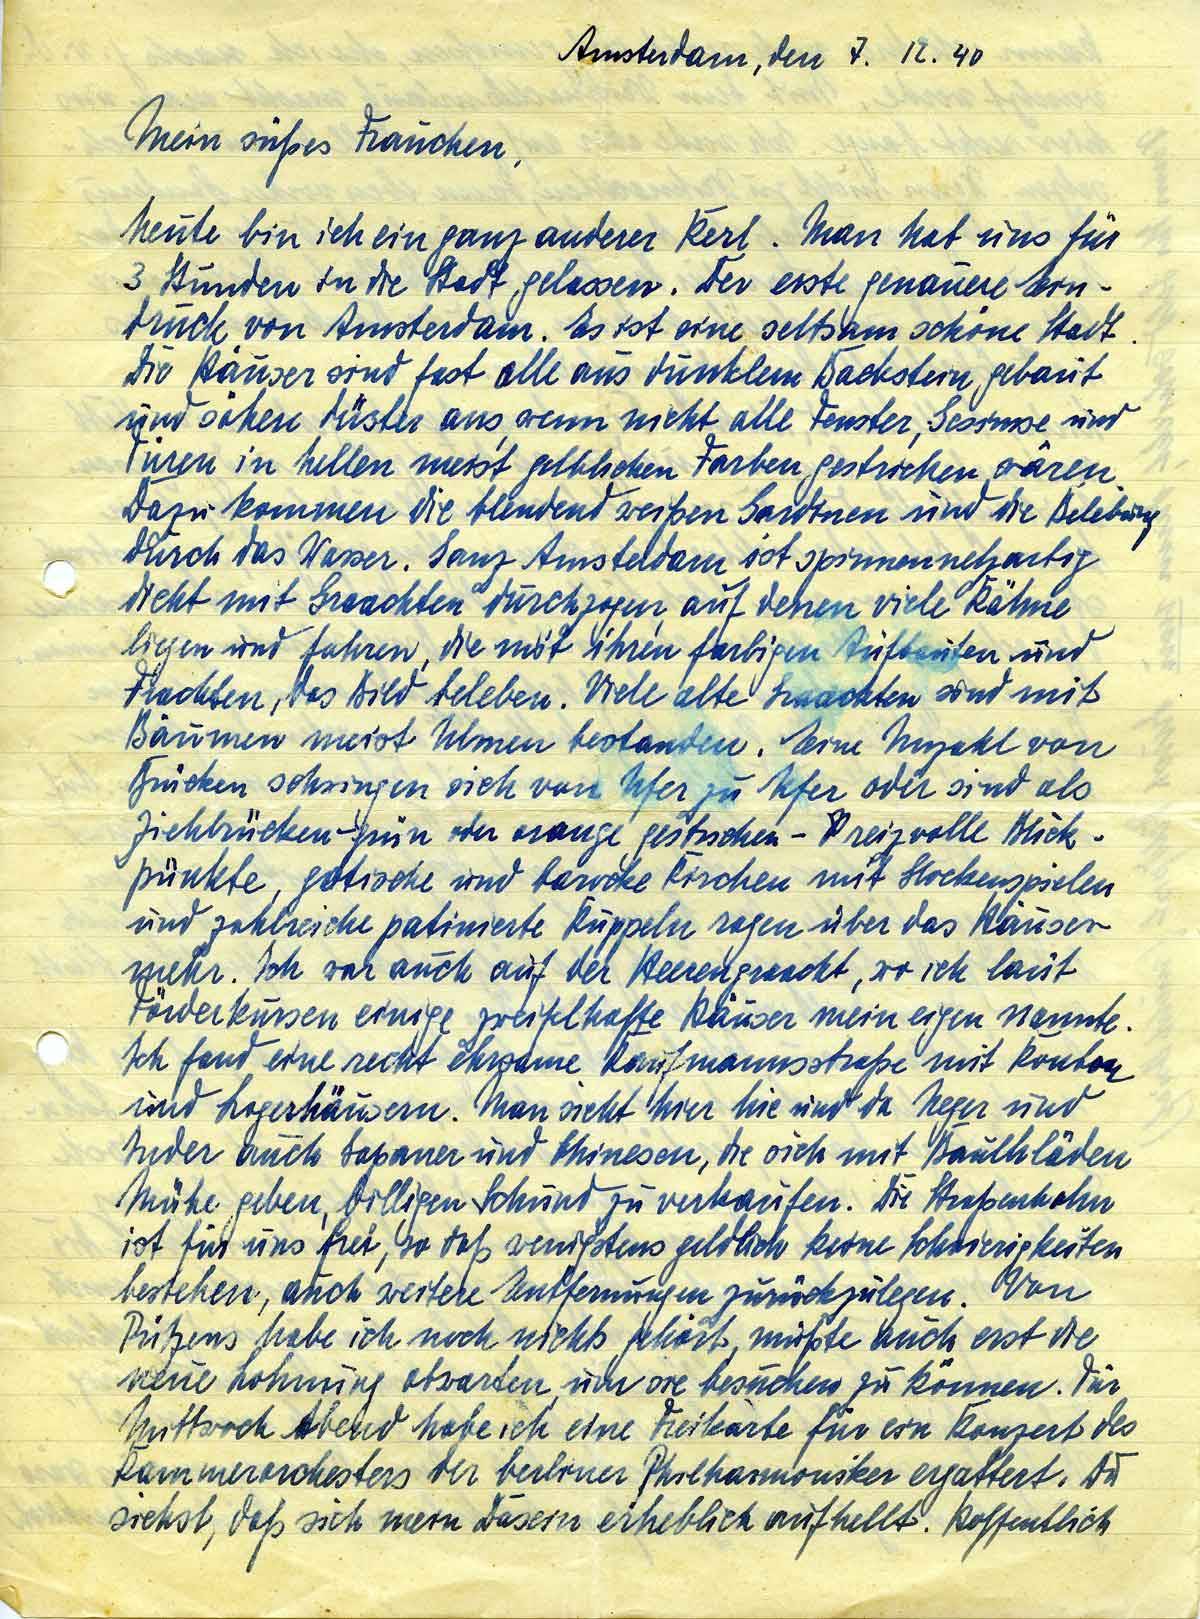 Amsterdam, den 7. 12. 40
Mein süßes Frauchen,
heute bin ich ein ganz anderer Kerl. Man hat uns für
3 Stunden in die Stadt gelassen. Der erste genauere Ein-
druck von Amsterdam. Es ist eine seltsam schöne Stadt.
Die Häuser sind fast alle aus dunklem Backstein gebaut
und sähen düster aus, wenn nicht alle Fenster, Gesimse und
Türen in hellen meist gelblichen Farben gestrichen wären.
Dazu kommen die blendend weißen Gardinen und die Belebung
durch das Wasser. Ganz Amsterdam ist spinnennetzartig
dicht mit Graachten durchzogen, auf denen viele Kähne
liegen und fahren, die mit ihren farbigen Aufbauten und
Frachten, das Bild beleben. Viele alte Graachten sind mit
Bäumen meist Ulmen bestanden. Eine Unzahl von
Brücken schwingen sich von Ufer zu Ufer oder sind als
Ziehbrücken – grün oder orange gestrichen – reizvolle Blick-
punkte, gotische und barocke Kirchen mit Glockenspielen
und zahlreiche patinierte Kuppeln ragen über das Häuser
mehr. Ich war auch auf der Heerengraacht, wo ich laut
Förderkursen einige zweifelhafte Häuser mein eigen nannte.
Ich fand eine recht ehrsame Kaufmannsstraße mit Kontor
und Lagerhäusern. Man sieht hier hie und da Neger und
Inder auch Japaner und Chinesen, die sich mit Bauchläden
Mühe geben, billigen Schund zu verkaufen. Die Straßenbahn
ist für uns frei, so daß wenigstens geldlich keine Schwierigkeiten
bestehen, auch weitere Entfernungen zurückzulegen. Von
habe ich noch nichts gehört, müßte auch erst die
neue Löhnung abwarten, um sie besuchen zu können. Für
Mittwoch Abend habe ich eine Freikarte für ein Konzert des
Kammerorchesters der berliner Philharmoniker ergattert. Du
siehst, daß sich mein Dasein erheblich aufhellt. Hoffentlich